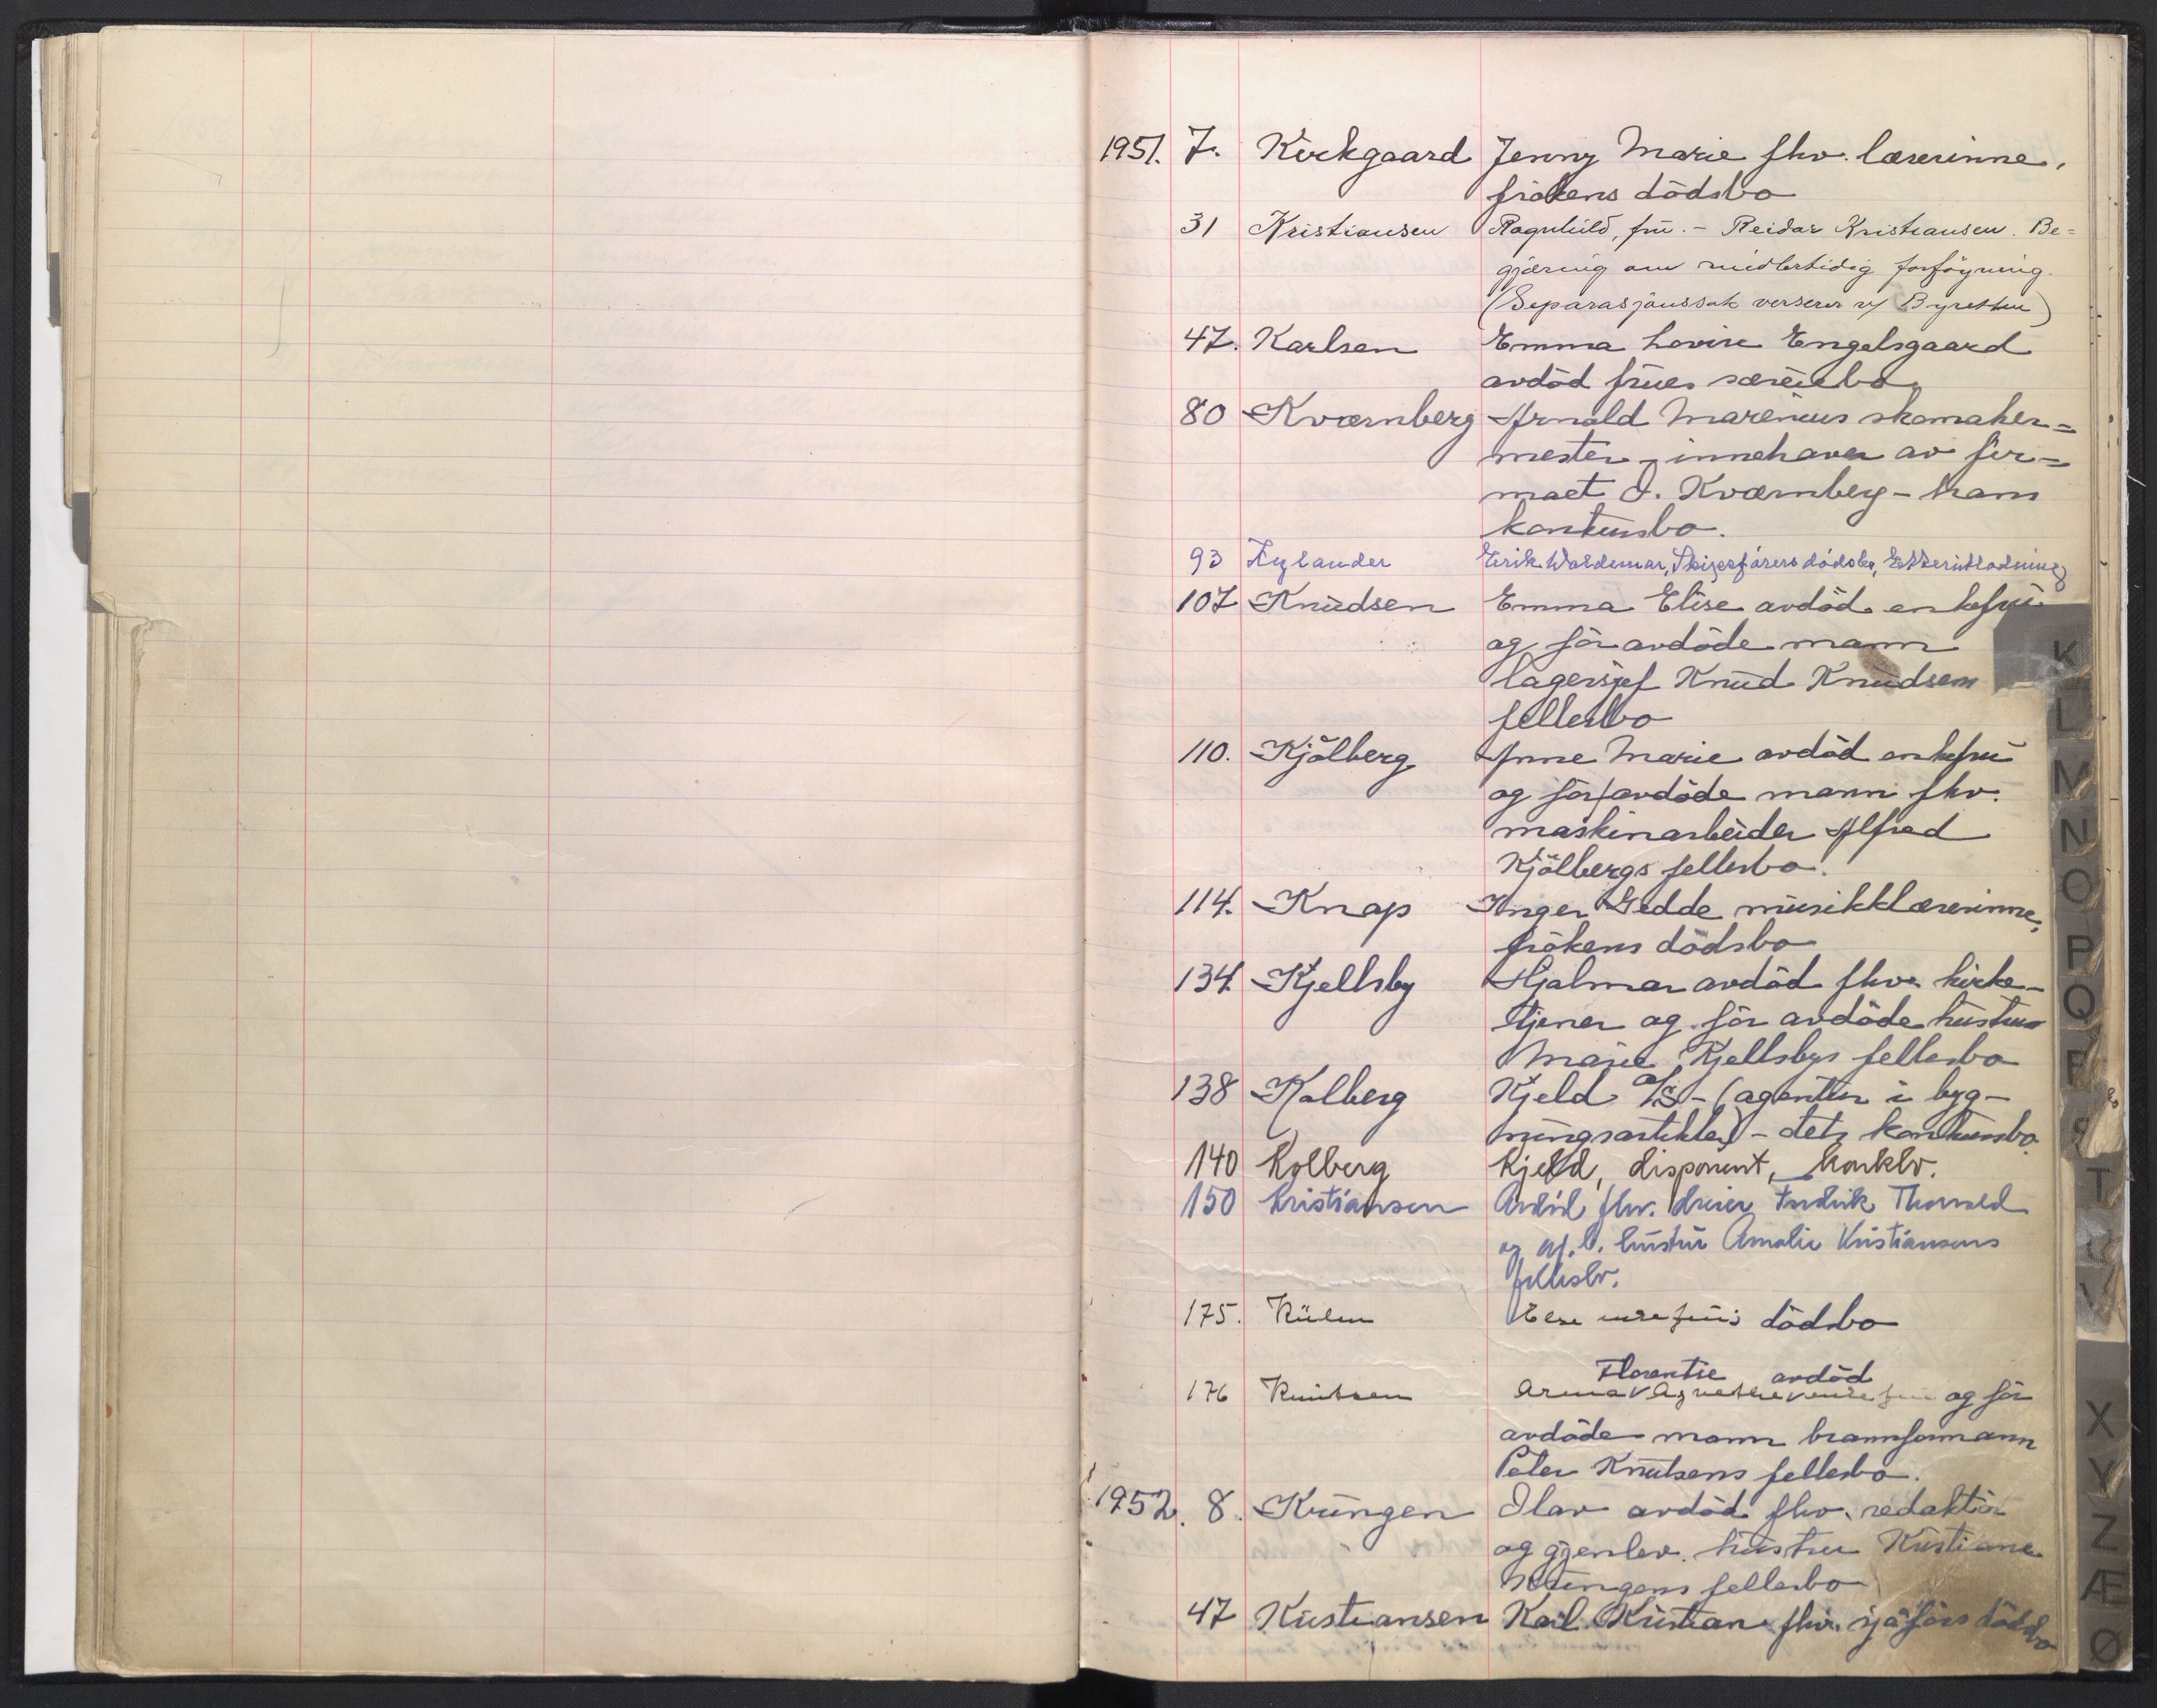 1951. 7. Kirkgaard Jenny Marie fhv. lærerinne,
frökens dödsbo
31 Kristiansen Ragnhild, fru. - Reidar Kristiansen. Be=
gjæring om midlertidig forföyning.
(Separasjonssak verserer v/ Byretten)
47. Karlsen Emma Lovise Engelsgaard
avdöd frues særeiebo
80 Kværnberg Arnold Marenius skomaker=
mester, innehaver av fir=
maet A. Kværnberg - hans
konkursbo.
93 Kylander Erik Waldemar, Skipsförers dödsbo, Etterutlodning
107 Knudsen Emma Elise avdöd enkefru
og för avdöde mann
lagersjef Knud Knudsens
fellesbo
110. Kjölberg Anne Marie avdöd enkefru
og för avdöde mann fhv.
maskinarbeider Alfred
Kjölbergs fellesbo.
114. Knap Inger Gedde musikklærerinne,
frökens dödsbo
134. Kjellsby Hjalmar avdöd fhv. kirke-
tjener og för avdöde hustru
Marie Kjellsbys fellesbo
138 Kolberg Kjeld A/S - (agentur i byg-
ningsartikler) - dets konkursbo.
140 Kolberg Kjeld, disponent, konkbo.
150 Kristiansen Avdöd fhv. dreier Fredrik Thorvald
og gj.l. hustru Amalie Kristiansens
fellesbo.
175. Külen Else enkefrus dödsbo
Florentie avdöd
176 Knutsen Anna Agnethe enkefru og för
avdöde mann brannformann
Peter Knutsens fellesbo.
1952. 8. Kringen Olav avdöd fhv. redaktör
og gjenlev. hustru Kristiane
Kringens fellesbo
47 Kristiansen Karl Kristian fhv. sjåförs dödsbo
K
L
M
N
O
P
Q
R
S
T
U
V
X
Y
Z
Æ
Ø